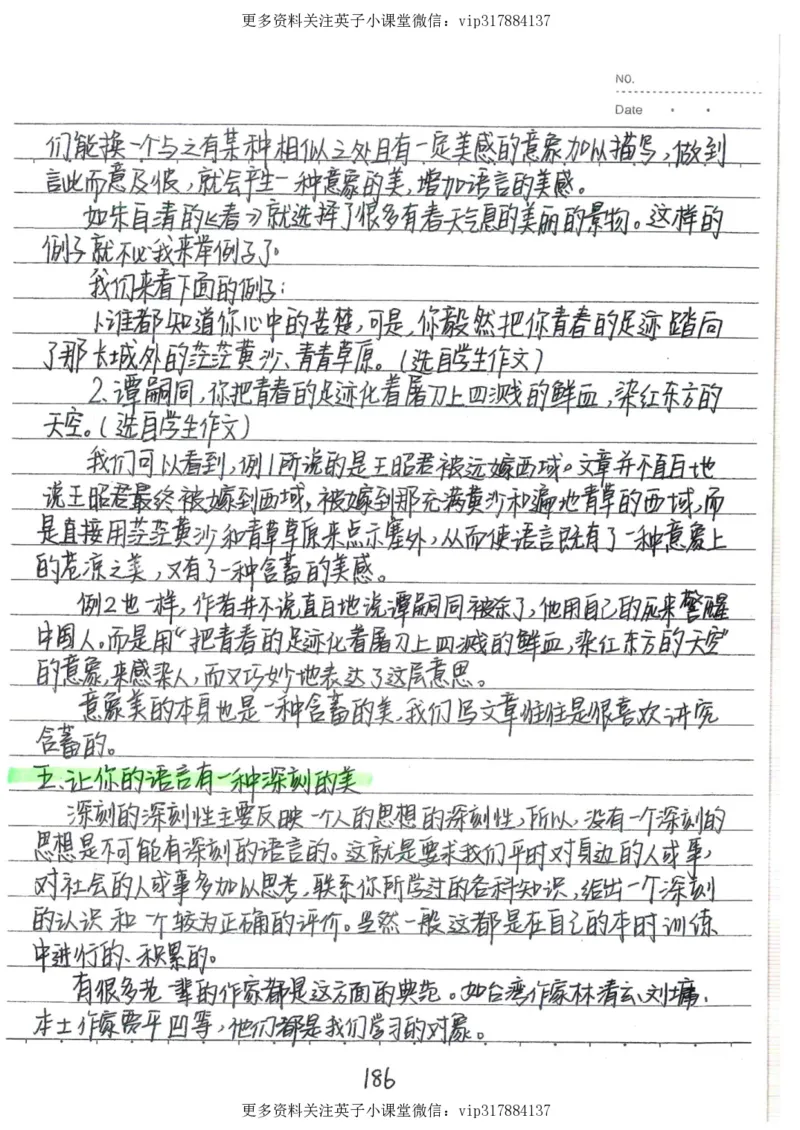 更多资料关注英子小课堂微信：vip317884137
NO.
Date
们能换一个与之有某种相似之处且有一定美感的意象加以描写，做到
言此而意及彼，就会产生一种意象的美，增加语言的美感。
如朱自清的《春》就选择了很多有春天气息的美丽的景物。这样的
例子就不必我来举例子了。
我们来看下面的例子：
1.谁都知道你心中的苦楚，可是，你毅然把你青春的足迹踏向
了那长城外的茫茫黄沙、青青草原。（选自学生作文）
2、谭嗣同，你把青春的足迹化着屠刀上四溅的鲜血，染红东方的
天空。（选自学生作文）
我们可以看到，例1所说的是王昭君被远嫁西域。文章并不直白地
说王昭君最终被嫁到西域，被嫁到那充满黄沙和遍地青草的西域，而
是直接用茫茫黄沙和青草草原来点示塞外，从而使语言既有了一种意象上
的苍凉之美，又有了一种含蓄的美感。
例2也一样，作者并不说直白地说谭嗣同被杀了，他用自己的死来警醒
中国人。而是用“把青春的足迹化着屠刀上四溅的鲜血，染红东方的天空”
的意象，来感染人，而又巧妙地表达了这层意思。
意象美的本身也是一种含蓄的美，我们写文章往往是很喜欢讲究
含蓄的。
五、让你的语言有一种深刻的美
深刻的深刻性主要反映一个人的思想的深刻性，所以，没有一个深刻的
思想是不可能有深刻的语言的。这就是要求我们平时对身边的人或事，
对社会的人或事多加以思考，联系你所学过的各科知识，给出一个深刻
的认识和一个较为正确的评价。当然一般这都是在自己的本时训练
中进行的、积累的。
有很多老一辈的作家都是这方面的典范。如台湾作家林清玄、刘墉，
本土作家贾平凹等，他们都是我们学习的对象。
186
更多资料关注英子小课堂微信：vip317884137